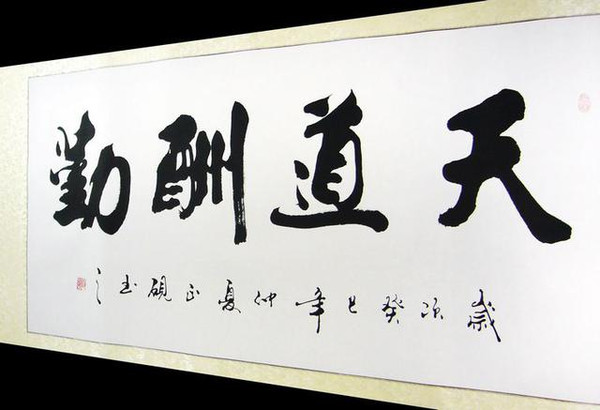 天道酬勤
歲次癸巳年仲夏正硯書之